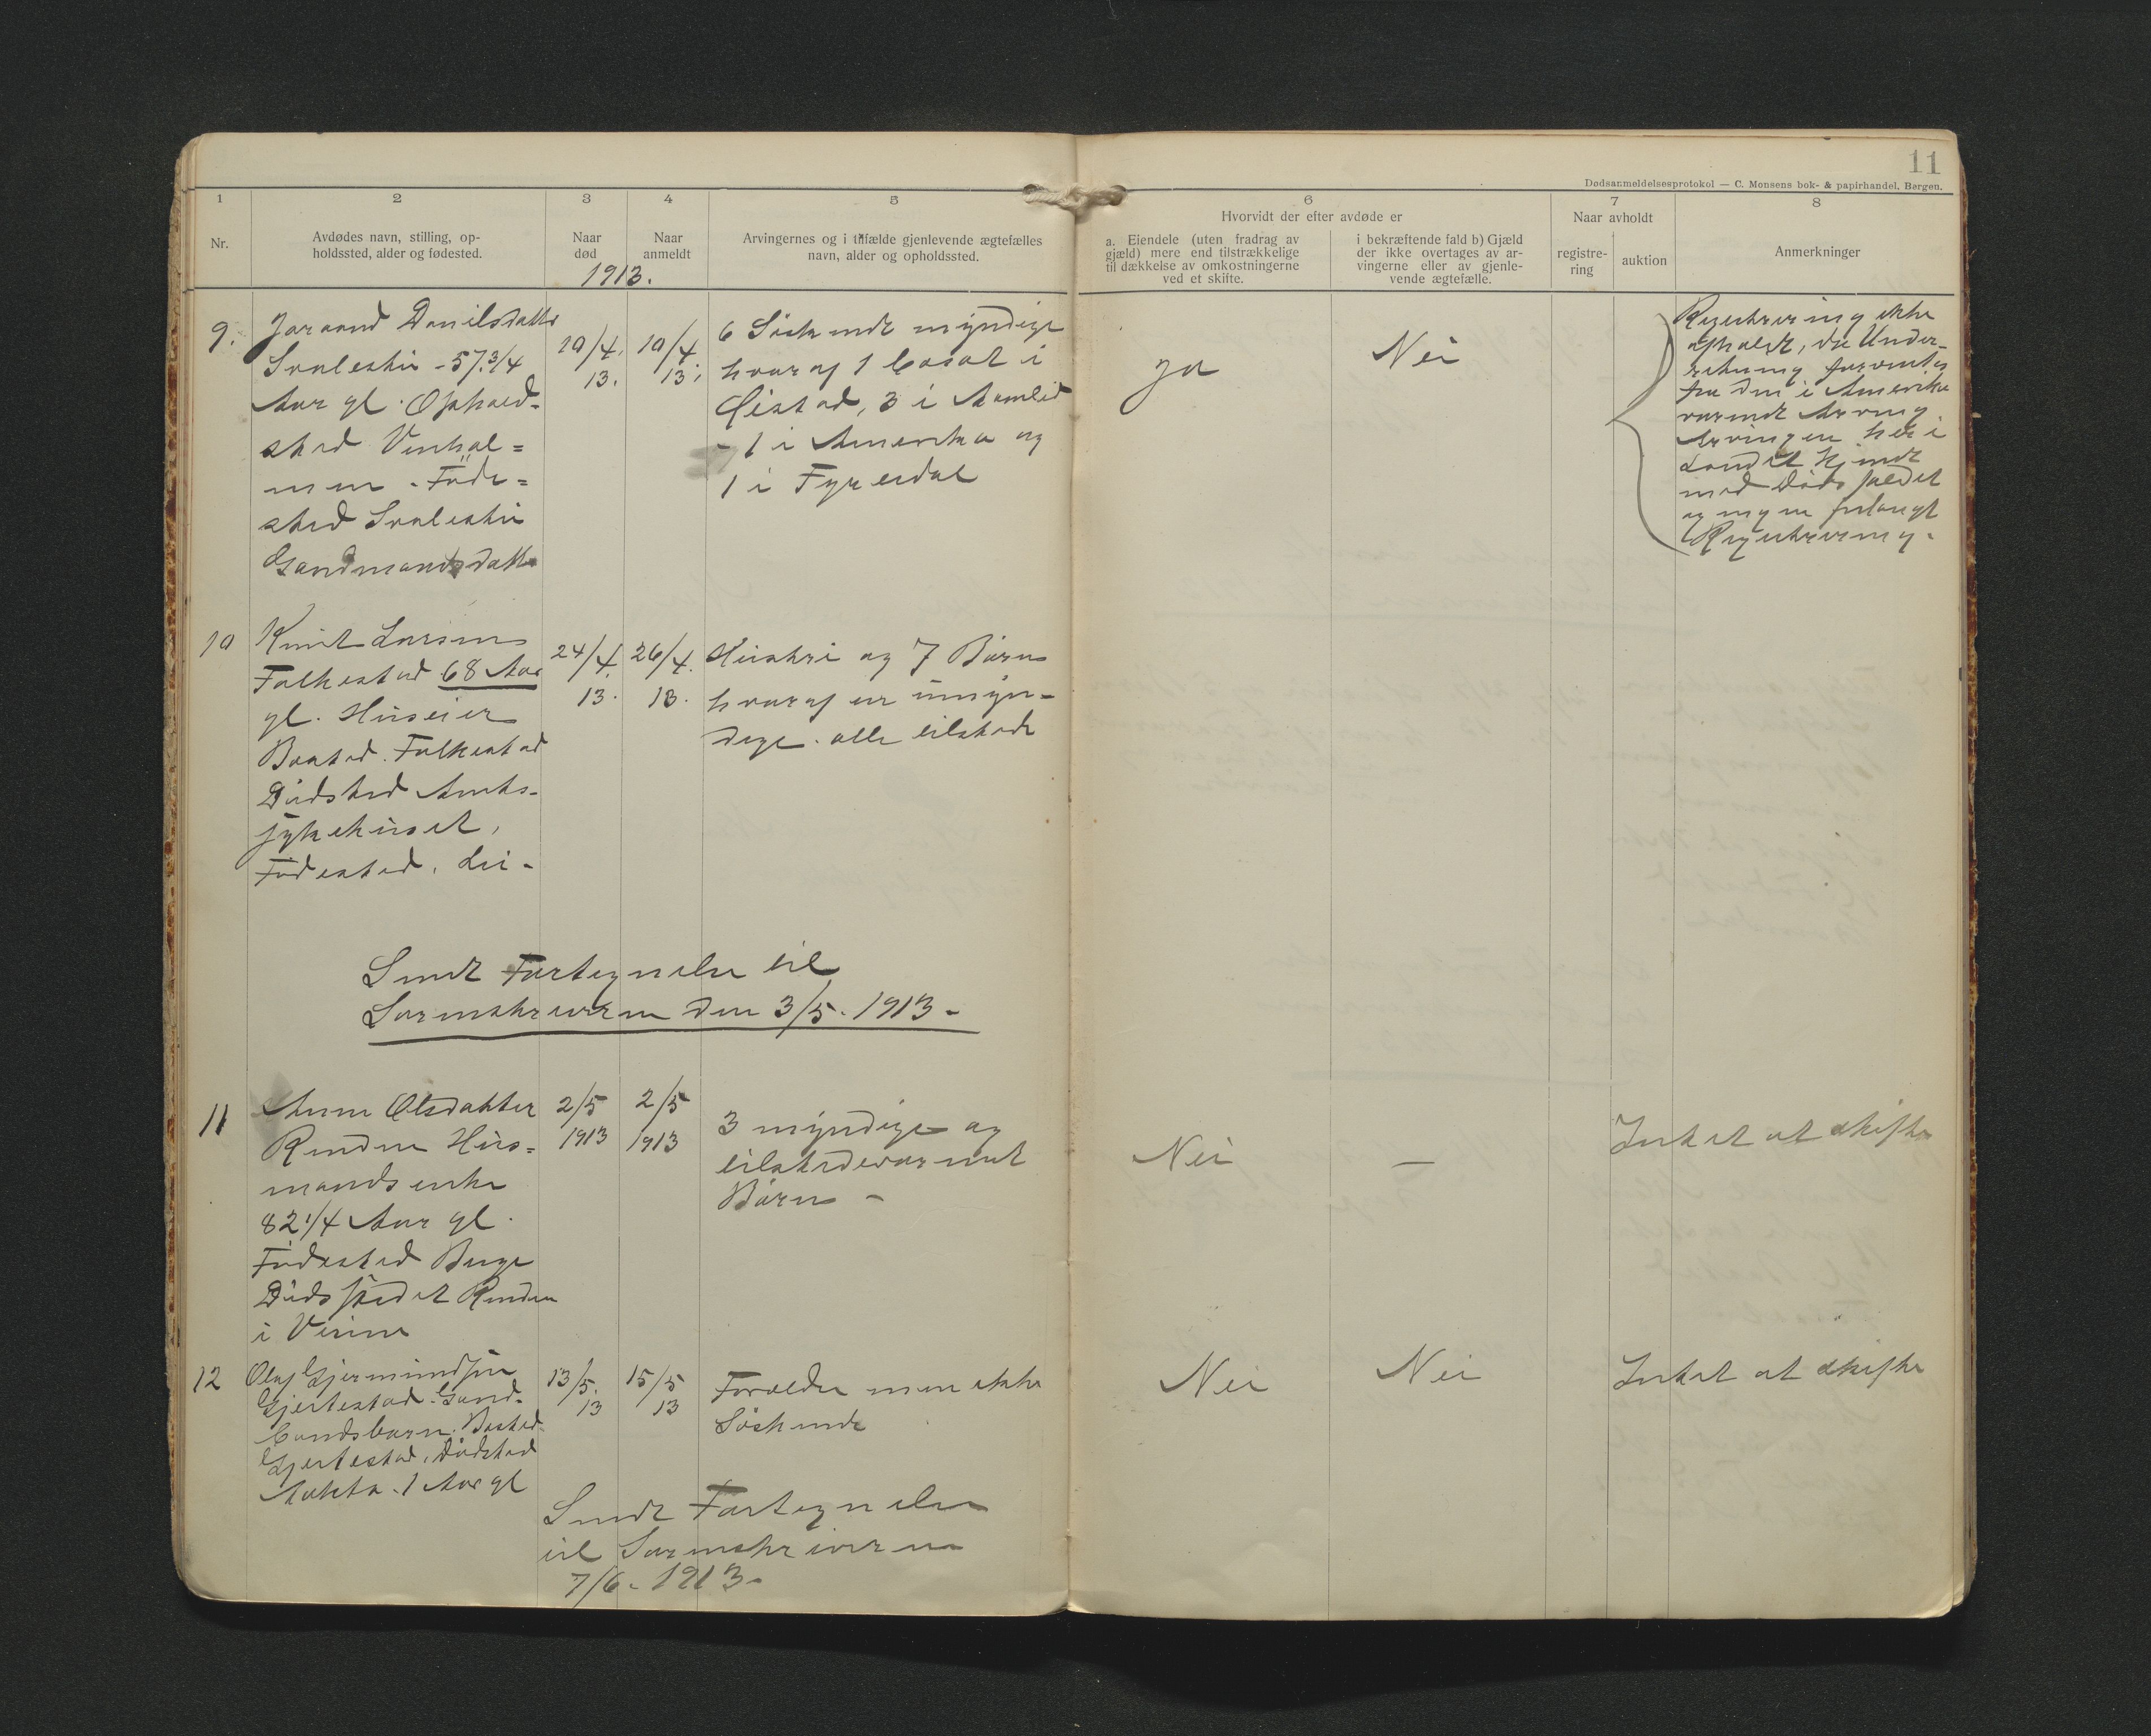 11
Dødsanmeldelsesprotokol — C. Monsens bok- & papirhandel, Bergen.
1
2
3
4
5
6
7
8
Nr.
Avdødes navn, stilling, op-
holdssted, alder og fødested.
Naar
død
Naar
anmeldt
1913.
Arvingernes og i tilfælde gjenlevende ægtefælles
navn, alder og opholdssted.
Hvorvidt der efter avdøde er
a. Eiendele (uten fradrag av
gjæld) mere end tilstrækkelige
til dækkelse av omkostningerne
ved et skifte.
i bekræftende fald b) Gjæld
der ikke overtages av ar-
vingerne eller av gjenle-
vende ægtefælle.
Naar avholdt
registre-
ring
auktion
Anmerkninger
9.
Joraand Danilsdatter
57 3/4
Aar gl. Ophold-
sted Vinhol=
men - Føde=
sted
Gaardmandsdatter
10/4.
13.
10/4
13.
6 Søskende myndige
hvoraf 1 bosat i
3 i Aamlid
- 1 i Amerika og
1 i Fyresdal
ja
Nei
Registrering ikke
afholdt, da Under-
retning forventes
fra den i Amerika
værende Arving.
Arvingene her i
Landet kjendt
med Dødsfaldet
og ingen forlangt
Registrering.
10
Knut Larsen
Folkestad 68 Aar
gl. Huseier
Bosted. Folkestad
Dødsted Amts-
sykehuset.
Fødested. Lei-
24/4.
13.
26/4.
13.
Hustru og 7 Børn
hvoraf en umyn-
dige. alle tilstede
Sendt Fortegnelse til
Sorenskriveren den 3/5. 1913-
11
Anne Olsdatter
Husmandsenke
82 1/4 Aar gl.
Fødested Berge
Dødsfaldet
i
2/5
1913
2/5
1913
3 myndige og
tilstedeværende
Børn -
Nei
—
Intet at skifte
12
Olaf Gjermundsen
Gjertestad. Gaard-
bondsbarn. Bosted
Gjertestad. Dødsted
1 Aar gl
13/5.
13
15/5
13
Forældre men ikke
Søskende
Nei
Nei
Intet at skifte
Sendt Fortegnelse
til Sorenskriveren
7/6. 1913-